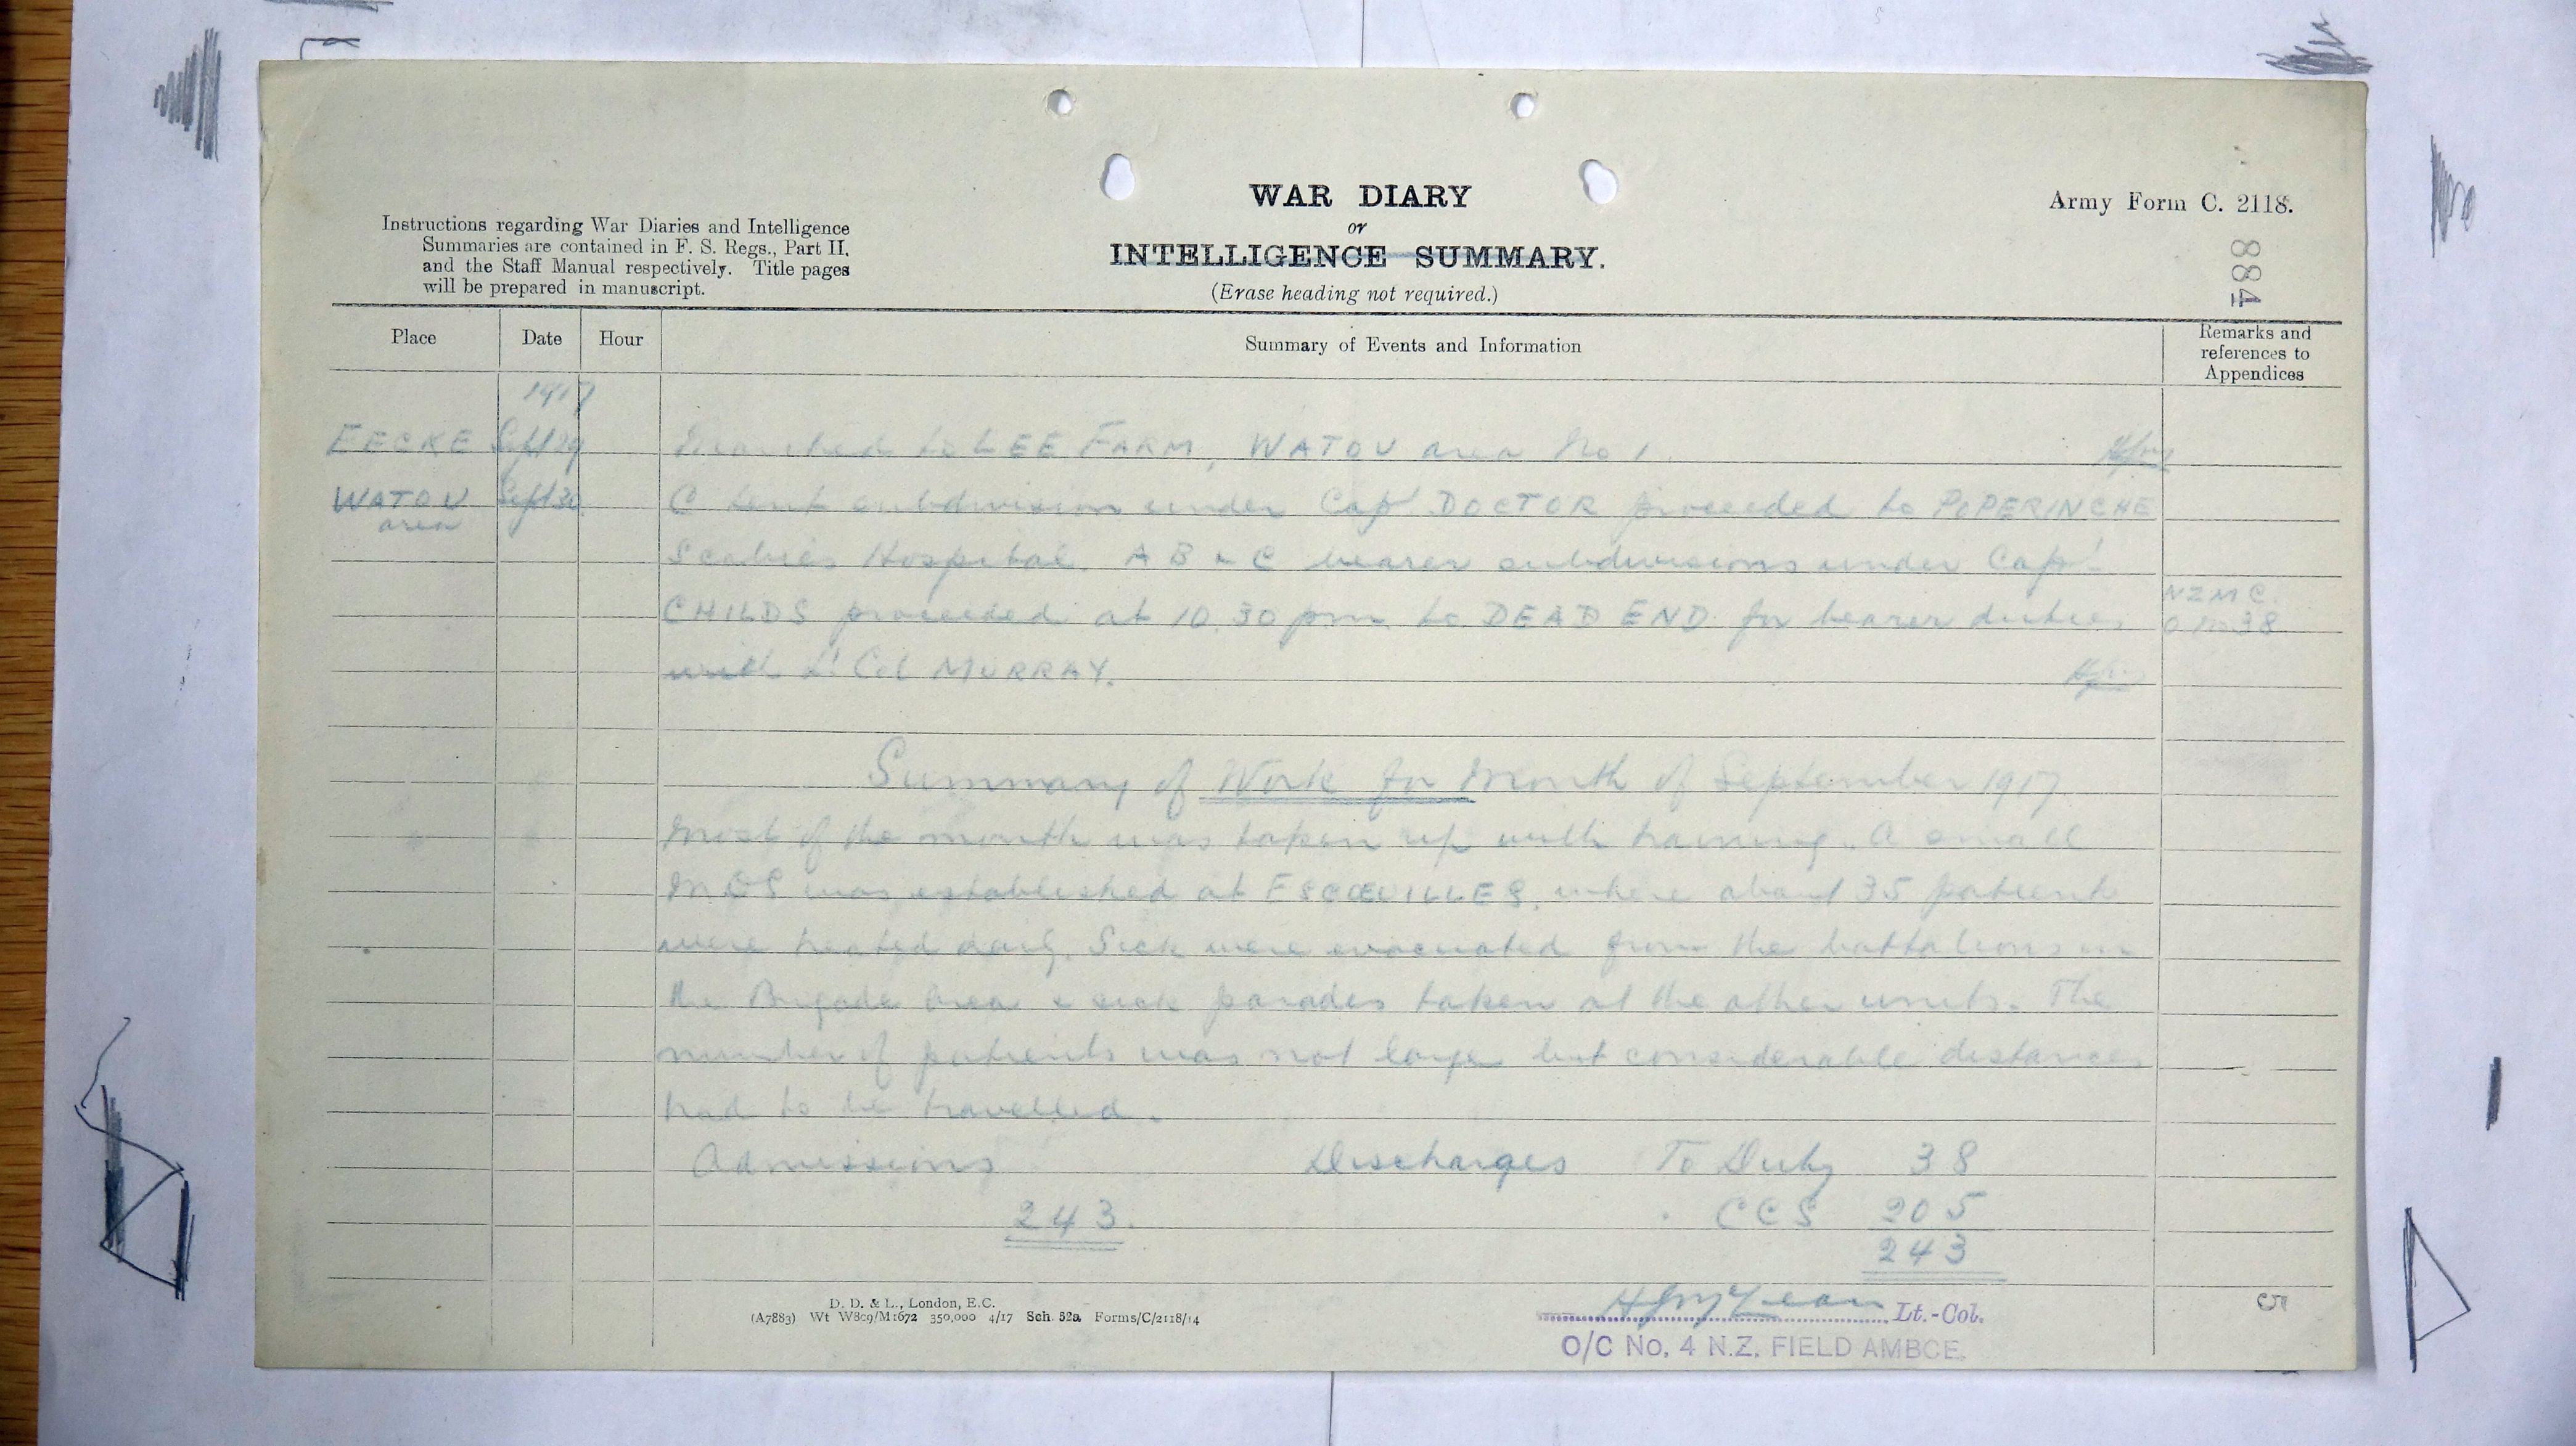 WAR DIARY
or
INTELLIGENCE SUMMARY.
(Erase heading not required.)
Army Form C. 2118.
884
Instructions regarding War Diaries and Intelligence
Summaries are contained in F. S. Regs., Part II.
and the Staff Manual respectively. Title pages
will be prepared in manuscript.
Place Date Hour Summary of Events and Information Remarks and references to Appendices
1917
EECKE Sept 29 Marched to LEE FARM, WATOU area No 1.
WATOU area Sept 30 C tent subdivision under Capt DOCTOR proceeded to POPERINGHE
Scabies Hospital. A B & C bearer subdivisions under Capt
CHILDS proceeded at 10.30 pm to DEAD END for bearer duties NZMC. O No 38
with Lt Col MURRAY.
Summary of Work for Month of September 1917
Most of the month was taken up with training. A small
MDS was established at ESCŒUILLES, where about 35 patients
were treated daily. Sick were evacuated from the battalions in
the Brigade Area & sick parades taken at the other units. The
number of patients was not large but considerable distances
had to be travelled.
Admissions Discharges To Duty 38
243. " CCS 205
243
D. D. & L., London, E.C.
(A7883) Wt W809/M1672 350,000 4/17 Sch. 52a Forms/C/2118/14
Lt.-Col.
O/C No. 4 N.Z. FIELD AMBCE.